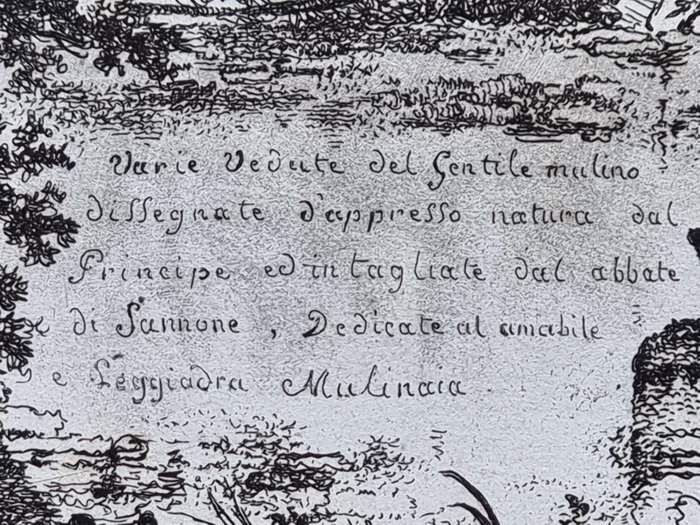 Varie Vedute del Gentile mulino
dissegnate d'appresso natura dal
Principe ed intagliate dal abbate
di Sannone, Dedicate al amabile
e Leggiadra Mulinaia.